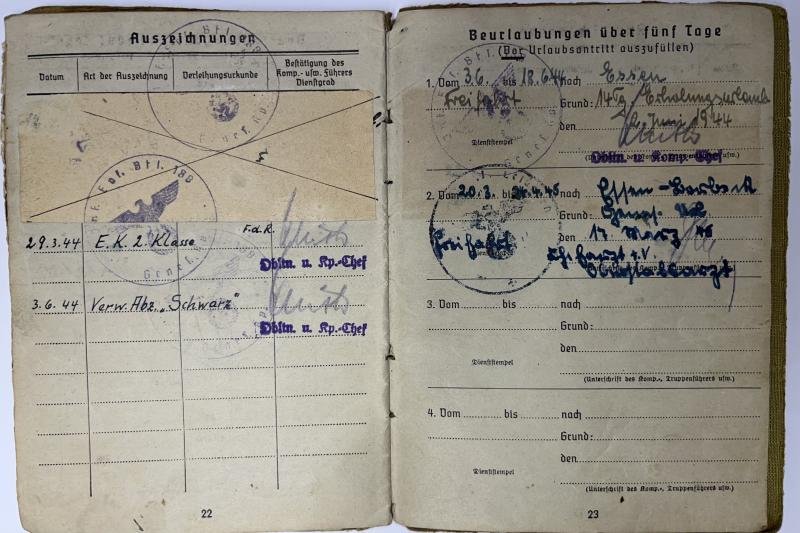 Auszeichnungen
Datum
Art der Auszeichnung
Verleihungsurkunde
Bestätigung des Komp.- usw. Führers Dienstgrad
Btl. 189
Genes. Kp.
Btl. 189
Genes.
29.3.44 E.K. 2 Klasse F.d.R.
Obltn. u. Kp.-Chef
3.6.44 Verw. Abz. „Schwarz"
Obltn. u. Kp.-Chef
22
Beurlaubungen über fünf Tage
(Vor Urlaubsantritt auszufüllen)
1. Vom 3.6. bis 18.6.44 nach Essen
Freifahrt Grund: 14 Tg. Erholungsurlaub
den 2. Juni 1944
Dienststempel
Obltn. u. Komp. Chef
2. Vom 20.3. bis 24.4.45 nach Essen-Borbeck
Grund: Genes.
Freifahrt den 17. März 45
Chefarzt i.V.
Oberstabsarzt
3. Vom bis nach
Grund:
den
Dienststempel
(Unterschrift des Komp.-, Truppenführers usw.)
4. Vom bis nach
Grund:
den
Dienststempel
(Unterschrift des Komp.-, Truppenführers usw.)
23